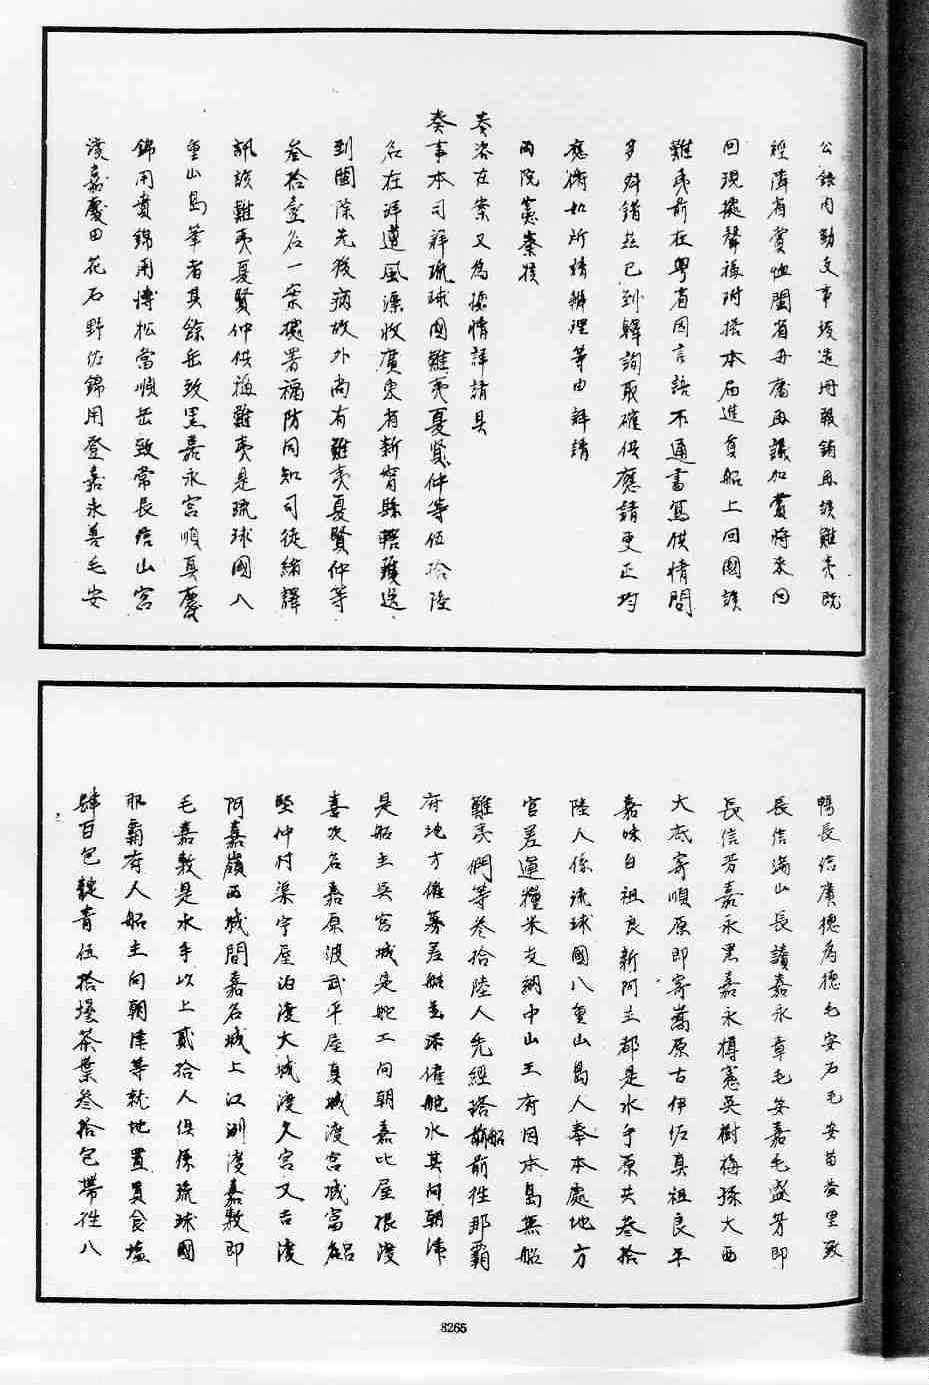 公銀內動支事竣造冊報銷再該難夷既
經隣省賞恤閩省毋庸再議加賞將來回
回現據聲稱附搭本屆進貢船上回國該
難夷前在粵省因言語不通書寫供情問
多舛錯茲已到驛詢取確供應請更正均
應衕如所請辦理等由詳請
兩院憲奏摺
奏咨在案又為據情詳請具
奏事本司詳琉球國難夷夏賢仲等伍拾陸
名在洋遭風漂收廣東省新甯縣轄護送
到閩除先後病故外尚有難夷夏賢仲等
叁拾壹名一案據署福防同知司徒緒譯
訊該難夷夏賢仲供稱難夷是琉球國八
重山島筆者其餘岳致黑嘉永宮順真慶
錦用貴錦用博松當順岳致常長信山宮
渡嘉慶田花石野佐錦用登嘉永善毛安
暢長信廣德為德毛安石毛安苗登里致
長信滿山長讀嘉永章毛安嘉毛盛芳即
長信芳嘉永黑嘉永樽憲吳樹梅孫大西
大底寄順原即寄嵩原古伊佐真祖良平
嘉味白祖良新阿生都是水手原共叁拾
陸人係琉球國八重山島人奉本處地方
官差運糧米交納中山王府因本島無船
難夷們等叁拾陸人先經搭船前往那霸
府地方僱募差船並添僱舵水其向朝津
是船主吳宮城是舵工向朝嘉比屋根渡
喜次名嘉原波武平屋真城渡宮城富名
堅仲村渠宇屋泊渡大城渡久宮又吉渡
阿嘉嶺西城間嘉名城上江洲渡嘉敷即
毛嘉敷是水手以上貳拾人俱係琉球國
那霸府人船主向朝津等就地置買食塩
肆百包靛青伍拾壜茶葉叁拾包帶往八
8265